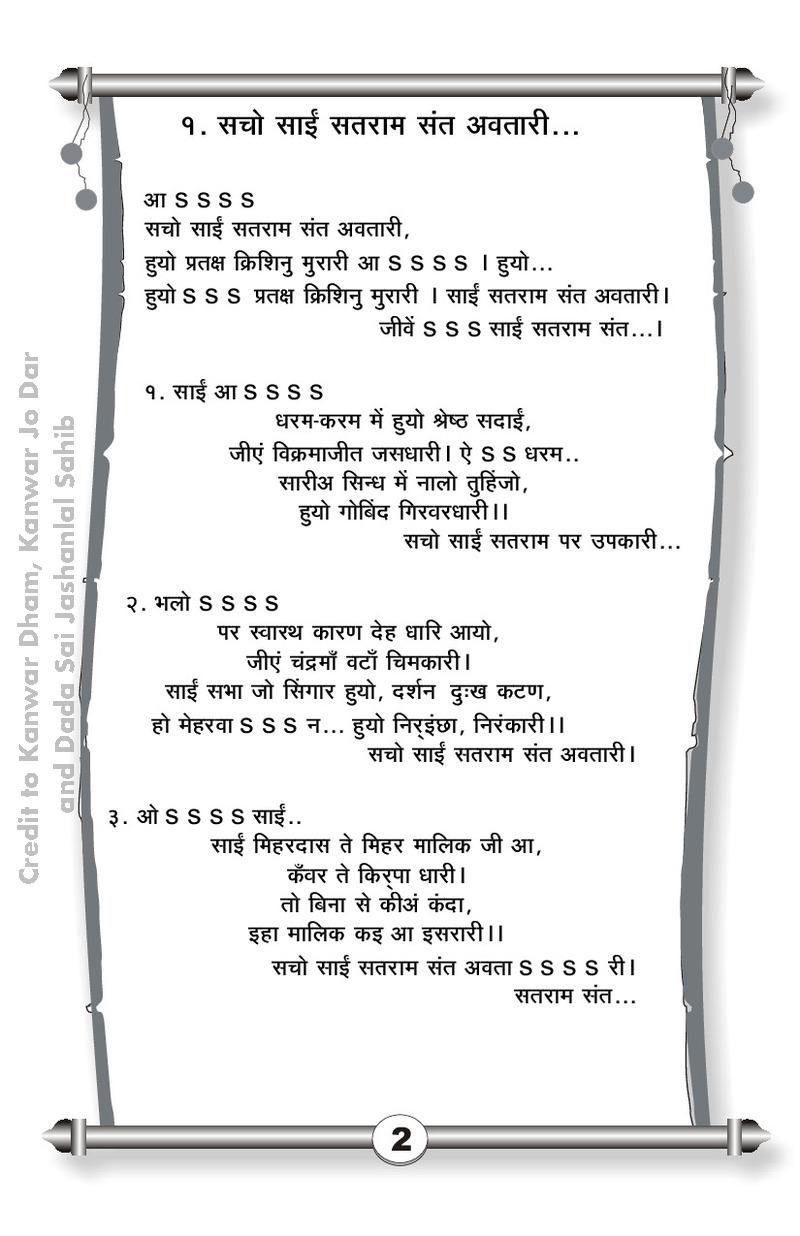 १. सचो साईं सतराम संत अवतारी...
आ S S S S
सचो साईं सतराम संत अवतारी,
हुयो प्रतक्ष क्रिशिनु मुरारी आ S S S S । हुयो...
हुयो S S S प्रतक्ष क्रिशिनु मुरारी । साईं सतराम संत अवतारी।
जीवें S S S साईं सतराम संत...।
१. साईं आ S S S S
धरम-करम में हुयो श्रेष्ठ सदाईं,
जीएं विक्रमाजीत जसधारी। ऐ S S धरम..
सारीअ सिन्ध में नालो तुहिंजो,
हुयो गोबिंद गिरवरधारी।।
सचो साईं सतराम पर उपकारी...
२. भलो S S S S
पर स्वारथ कारण देह धारि आयो,
जीएं चंद्रमाँ वटाँ चिमकारी।
साईं सभा जो सिंगार हुयो, दर्शन दुःख कटण,
हो मेहरवा S S S न... हुयो निर्‌इंछा, निरंकारी।।
सचो साईं सतराम संत अवतारी।
३. ओ S S S S साईं..
साईं मिहरदास ते मिहर मालिक जी आ,
कँवर ते किर्‌पा धारी।
तो बिना से कीअं कंदा,
इहा मालिक कइ आ इसरारी।।
सचो साईं सतराम संत अवता S S S S री।
सतराम संत...
2
Credit to Kanwar Dham, Kanwar Jo Dar
and Dada Sai Jashanlal Sahib